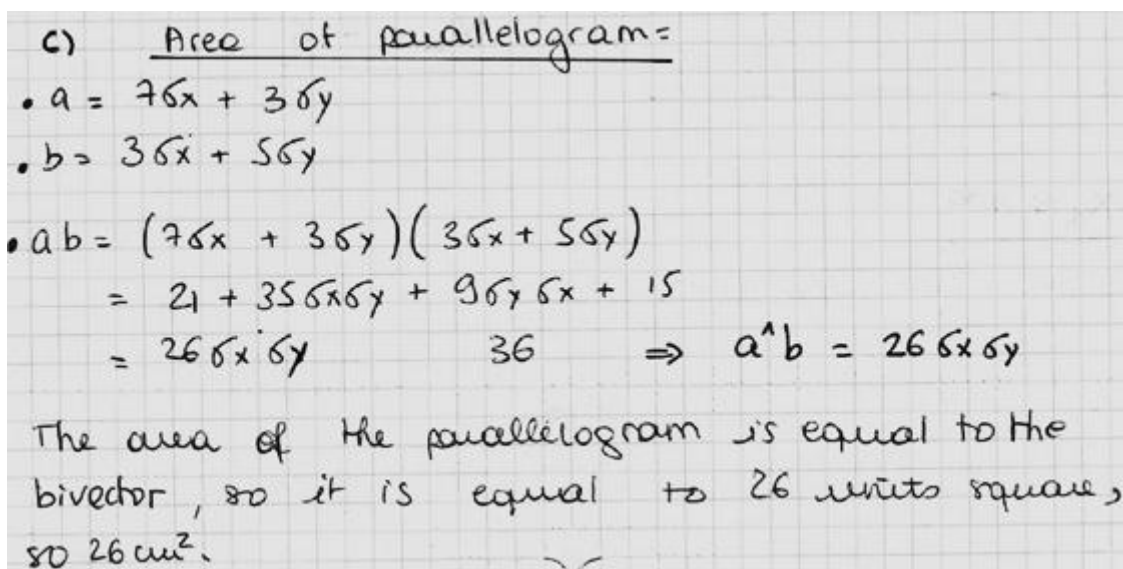 c) Area of parallelogram=
• a = 7σx + 3σy
• b = 3σx + 5σy
• ab = (7σx + 3σy)(3σx + 5σy)
= 21 + 35σxσy + 9σyσx + 15
= 26σxσy 36 ⇒ a^b = 26σxσy
The area of the parallelogram is equal to the
bivector, so it is equal to 26 units square,
so 26 cm².